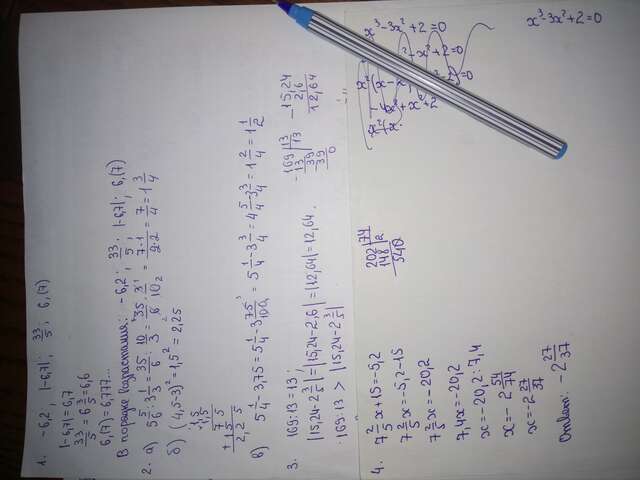 1. -6,2 ; |-6,7| ; 33/5 ; 6,(7)
|-6,7| = 6,7
33/5 = 6 3/5 = 6,6
6,(7) = 6,777...
В порядке возрастания: -6,2 ; 33/5 ; |-6,7| ; 6,(7)
2. а) 5 5/6 : 3 1/3 = 35/6 : 10/3 = 35/6 · 3/10 = 7·1/2·2 = 7/4 = 1 3/4
б) (4,5-3)² = 1,5² = 2,25
1,5
1,5
75
15
2,25
в) 5 1/4 - 3,75 = 5 1/4 - 3 75/100 = 5 1/4 - 3 3/4 = 4 5/4 - 3 3/4 = 1 2/4 = 1 1/2
3. 169:13 = 13 ;
|15,24 - 2 3/5| = |15,24 - 2,6| = |12,64| = 12,64.
169:13 > |15,24 - 2 3/5|
169 13
13 13
39
39
0
-15,24
2,6
12,64
4. 7 2/5 x + 15 = -5,2
7 2/5 x = -5,2 - 15
7 2/5 x = -20,2
7,4x = -20,2
x = -20,2 : 7,4
x = -2 54/74
x = -2 27/37
Ответ: -2 27/37
202 74
148 2
540
x³ - 3x² + 2 = 0
x³ - 3x² + 2 = 0